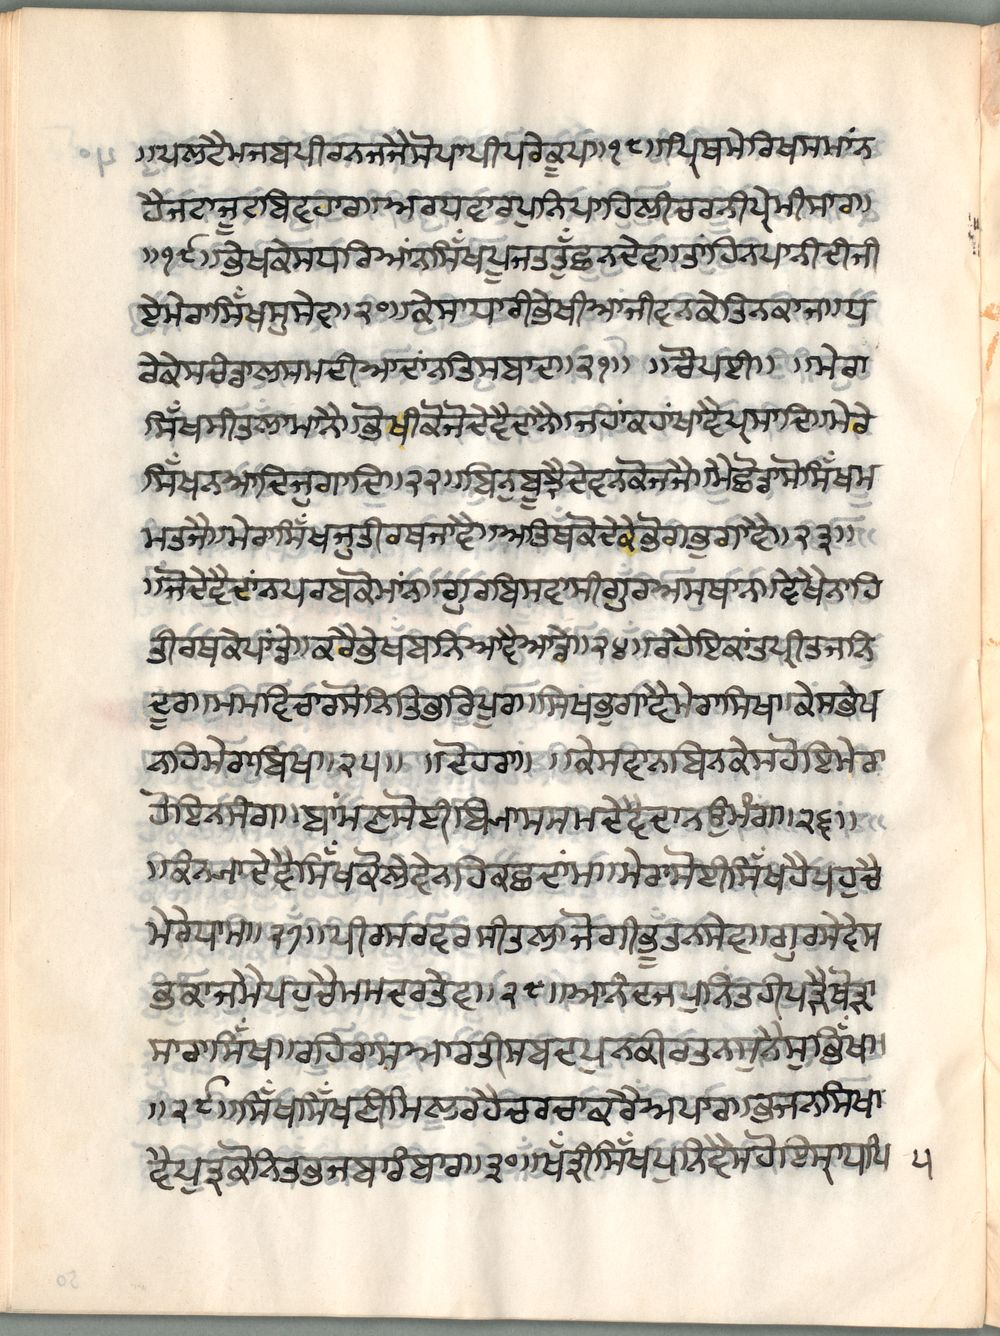 ॥ਪਲਟੈਮਜਬਪੀਰਨਜਜੈਸੋਪਾਪੀਪਰੇਕੂਪ॥੧੮॥ਪ੍ਰਿਥਮੇਰਿਖਸਮਾਂਨ
ਹੈਜਟਾਜੂਟਬਿਵਹਾਰ॥ਅਰਧਵਾਰਪੁਨਿਪਾਹਿਲੀਚਰਨੀਪ੍ਰੇਮੀਸਾਰ॥
॥੧੯॥ਭੇਖਕੇਸਧਰਿਆਂਨਸਿੰਖਪੂਜਤਤੂੰਛਨਦੇਵ॥ਤਾਂਹਿਨਪਾਨੀਦੀਜੀ
ਏਮੇਰਾਸਿੰਖਸੁਸੇਵ॥੨੦॥ਕੇਸਾਧਾਰੀਭੇਖੀਆਜੀਵਨਕੇਤਿਨਕਾਜ॥ਧ
ਰੇਕੇਸਚੰਡਾਲਸਮਦੀਆਦਾਂਨਤਿਸਬਾਦ॥੨੧॥ ॥ਚੌਪਈ॥ ॥ਮੇਰਾ
ਸਿੰਖਸੀਤਲਾਮਾਨੈ॥ਭੇਖੀਕੋਜੋਦੇਵੈਦਾਨੈ॥ਜਹਾਂਕਹਾਂਖਾਵੈਪ੍ਰਸਾਦਿ॥ਮੇਰੇ
ਸਿੰਖਨਆਦਿਜੁਗਾਦਿ॥੨੨॥ਬਿਨੁਬੂਝੈਦੇਵਨਕੋਜਜੈ॥ਮੈਛੋਡਾਸੋਸਿੰਖਮ
ਮਤਜੈ॥ਮੇਰਾਸਿੰਖਜੁਤੀਰਥਜਾਵੈ॥ਅਤਿਥਕੋਦੇਕੈਭੋਗਭੁਗਾਵੈ॥੨੩॥
॥ਜੋਦੇਵੈਦਾਂਨਪਰਬਕੋਮਾਂਨ॥ਗੁਰਬਿਸਵਾਸੀਗੁਰਅਸਥਾਨ॥ਦੇਖੈਨਾਹਿ
ਤੀਰਥਕੇਪਾਂਡੇ॥ਕਰੈਭੇਖਬਨਿਆਵੈਆਡੇ॥੨੪॥ਰਹੈਇਕਾਂਤਪ੍ਰੀਤਜਨਿ
ਦੂਰ॥ਮਮਵਿਚਾਰਸੋਨਿਤਿਭਰਿਪੂਰ॥ਸਿਖਭੁਗਾਵੈਮੇਰਾਸਿਖ॥ਕੇਸਭੇਖ
ਨਹਿਮੇਰਾਬਿਖ॥੨੫॥ ॥ਦੋਹਰਾ॥ ॥ਕੇਸਵਾਨਬਿਨਕੇਸਹੋਇਮੇਰਾ
ਹੋਇਨਸੰਗ॥ਬਾਂਮਣਸੋਈਬਿਨਾਸਸਮਦੇਵੈਦਾਨਉਮੰਗ॥੨੬॥
॥ਕੰਨਆਦੇਵੈਸਿੰਖਕੋਲੇਵੇਨਹਿਕਛੁਦਾਂਮ॥ਮੇਰਾਸੋਈਸਿੰਖਹੈਪਹੁਚੈ
ਮੇਰੇਧਾਮ॥੨੭॥ਪੀਰਸਰਵਰਸੀਤਲਾਜੋਗੀਭੂਤਨਸੇਵ॥ਗੁਰਸੇਵੈਸ
ਭਕਾਜਮੈਪਹੁਚੈਮਮਦਰਤੇਵ॥੨੮॥ਆਨੰਦਜਪੁਨਿਤਹੀਪੜੈਥੋੜਾ
ਸਾਰਾਸਿੰਖ॥ਰਹਿਰਾਸਆਰਤੀਸਬਦਪੁਨਕੀਰਤਨਸੁਨੈਸੁਭਿੰਖ॥
॥੨੯॥ਸਿੰਖਸਿੰਖਣੀਮਿਲਰਹੈਚਰਚਾਕਰੈਅਪਾਰ॥ਭਜਨਸਿਖਾ
ਵੈਪੁਤ੍ਰਕੋਨਿਤਭਜਬਾਰੰਬਾਰ॥੩੦॥ਖੱਤ੍ਰੀਸਿੰਖਪੁਨਿਵੈਸਹੋਇਸ੍ਰਾਧਪਿ ੫